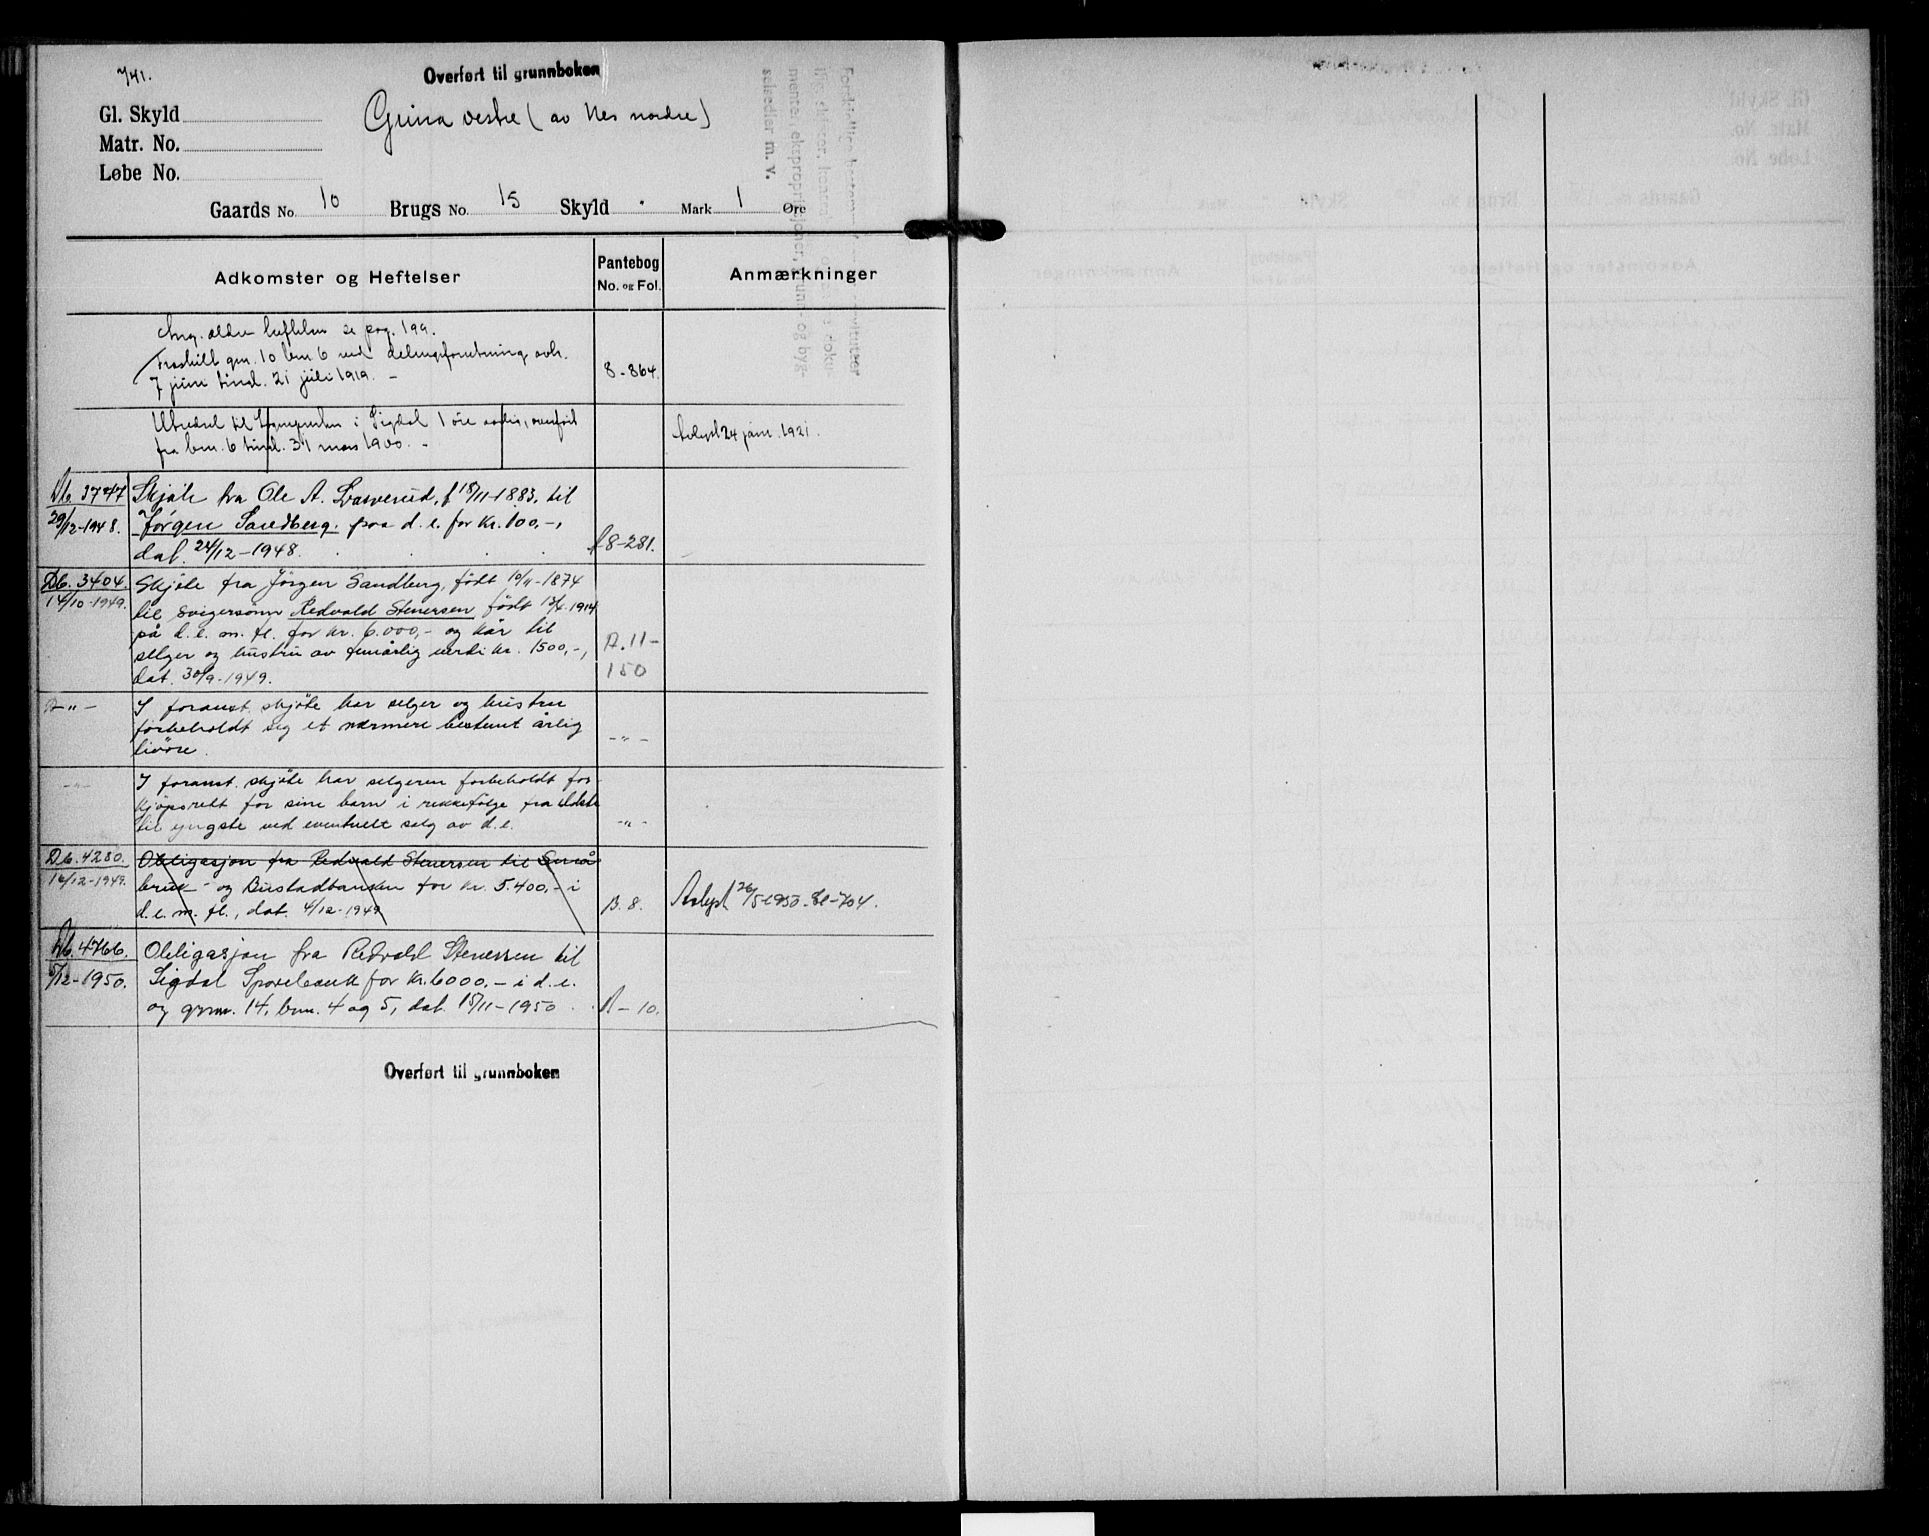 741.
Overført til grunnboken
Gl. Skyld
Grina vestre (av Nes nordre)
Matr. No.
Løbe No.
Gaards No. 10 Brugs No. 15 Skyld . Mark 1 Øre
Adkomster og Heftelser
Pantebog
No. og Fol.
Anmærkninger
Ang. eldre heftelser se pag. 199.
Fraskilt gm. 10 bm. 6 ved delingsforretning avh.
7 juni tingl. 21 juli 1919. - 8-864.
Utredsel til i Sigdal 1 øre aarlig, overført
fra bm. 6 tingl. 31 mars 1900. - Avlyst 24 jan. 1921.
Db. 3747 Skjøte fra Ole A. f 18/11-1883, til
29/12-1948. Jørgen Sandberg. paa d. e. for kr. 100,-,
dat. 24/12-1948. A 8-281.
Db. 3404. Skjøte fra Jörgen Sandberg, født 10/11-1874
14/10-1949. til svigersønn Redvald Stenersen født 1914
på d.e. m. fl. for kr. 6.000,- og kår til
selger og hustru av femårlig verdi kr. 1500,-, A. 11-
dat. 30/9-1949. 150
-"- I foranst. skjöte har selger og hustru
forbeholdt sig et nærmere bestemt årlig
livöre. -"-
-"- I foranst. skjöte har selgeren forbeholdt for-
kjöpsrett for sine barn i rekkefölge fra eldste
til yngste ved eventuelt salg av d.e. -"-
Db. 4280. Obligasjon fra Redvald Stenersen til Små-
16/12-1949. bruk- og Bustadbanken for kr. 5.400,- i
d.e. m. fl., dat. 4/12-1949 B. 8. Avlyst 26/5-1950. 704.
Db. 4766. Obligasjon fra Redvald Stenersen til
/12-1950. Sigdal Sparebank for kr. 6000.- i d.e.
og grm. 14, bm. 4 og 5, dat. 15/11-1950. B-10.
Overført til grunnboken